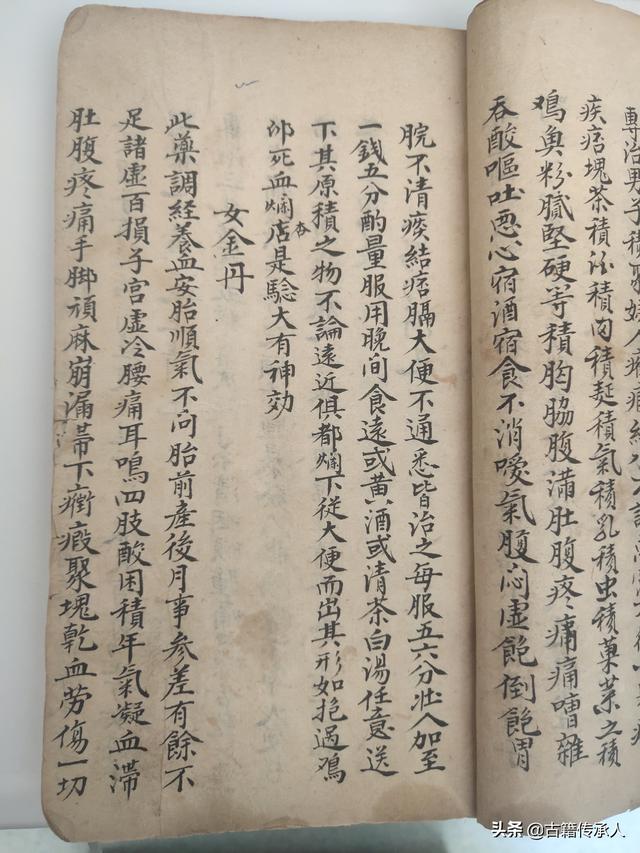 專治男子積聚婦人癥瘕
疾痞塊茶積冷積肉積麵積氣積乳積虫積菓菜之積
鳮魚粉膩堅硬等積胸脇腹滿肚腹疼痛痛嘈雜
吞酸嘔吐惡心宿酒宿食不消噯氣腹悶虛飽倒飽胃
脘不清痰結痞膈大便不通悉皆治之每服五六分壯人加至
一錢五分酌量服用晚間食遠或黄酒或清茶白湯任意送
下其原積之物不論遠近俱都爛下從大便而出其形如抱過鳮
卵死血爛杏店是驗大有神効
女金丹
此藥調經養血安胎順氣不问胎前産後月事參差有餘不
足諸虛百損子宮虛冷腰痛耳鳴四肢酸困積年氣凝血滯
肚腹疼痛手脚頑麻崩漏帶下癥瘕聚塊乾血劳傷一切
头条 @古籍传承人